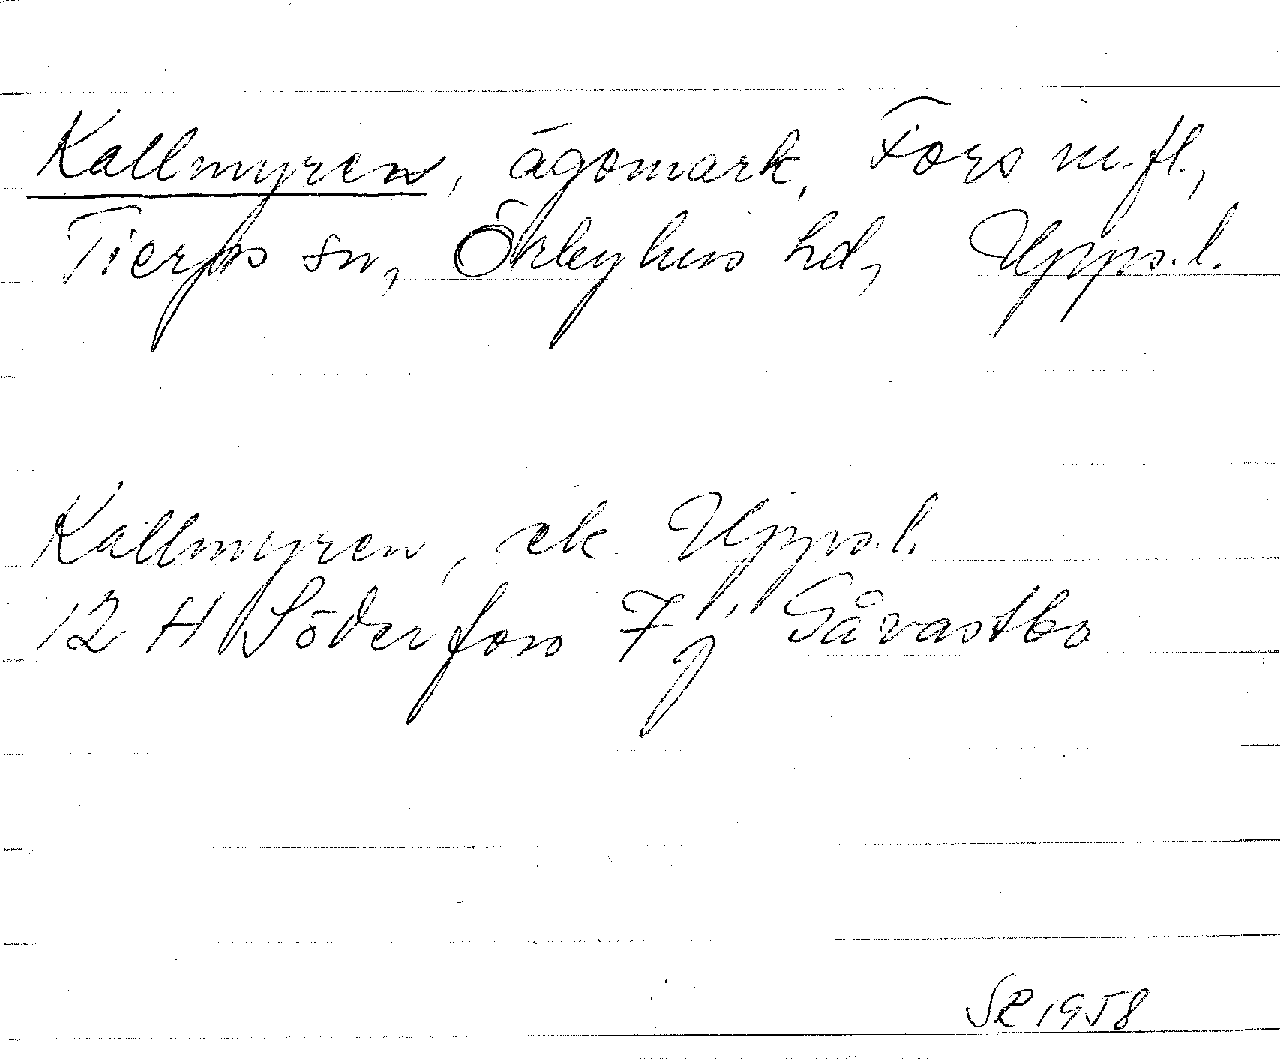 Kallmyren, ägomark, Fors m.fl.,
Tierps sn, Örbyhus hd, Upps. l.
Kallmyren, ek. Upps. l.
12 H Söderfors 7 j Gåvastbo
SR 1958